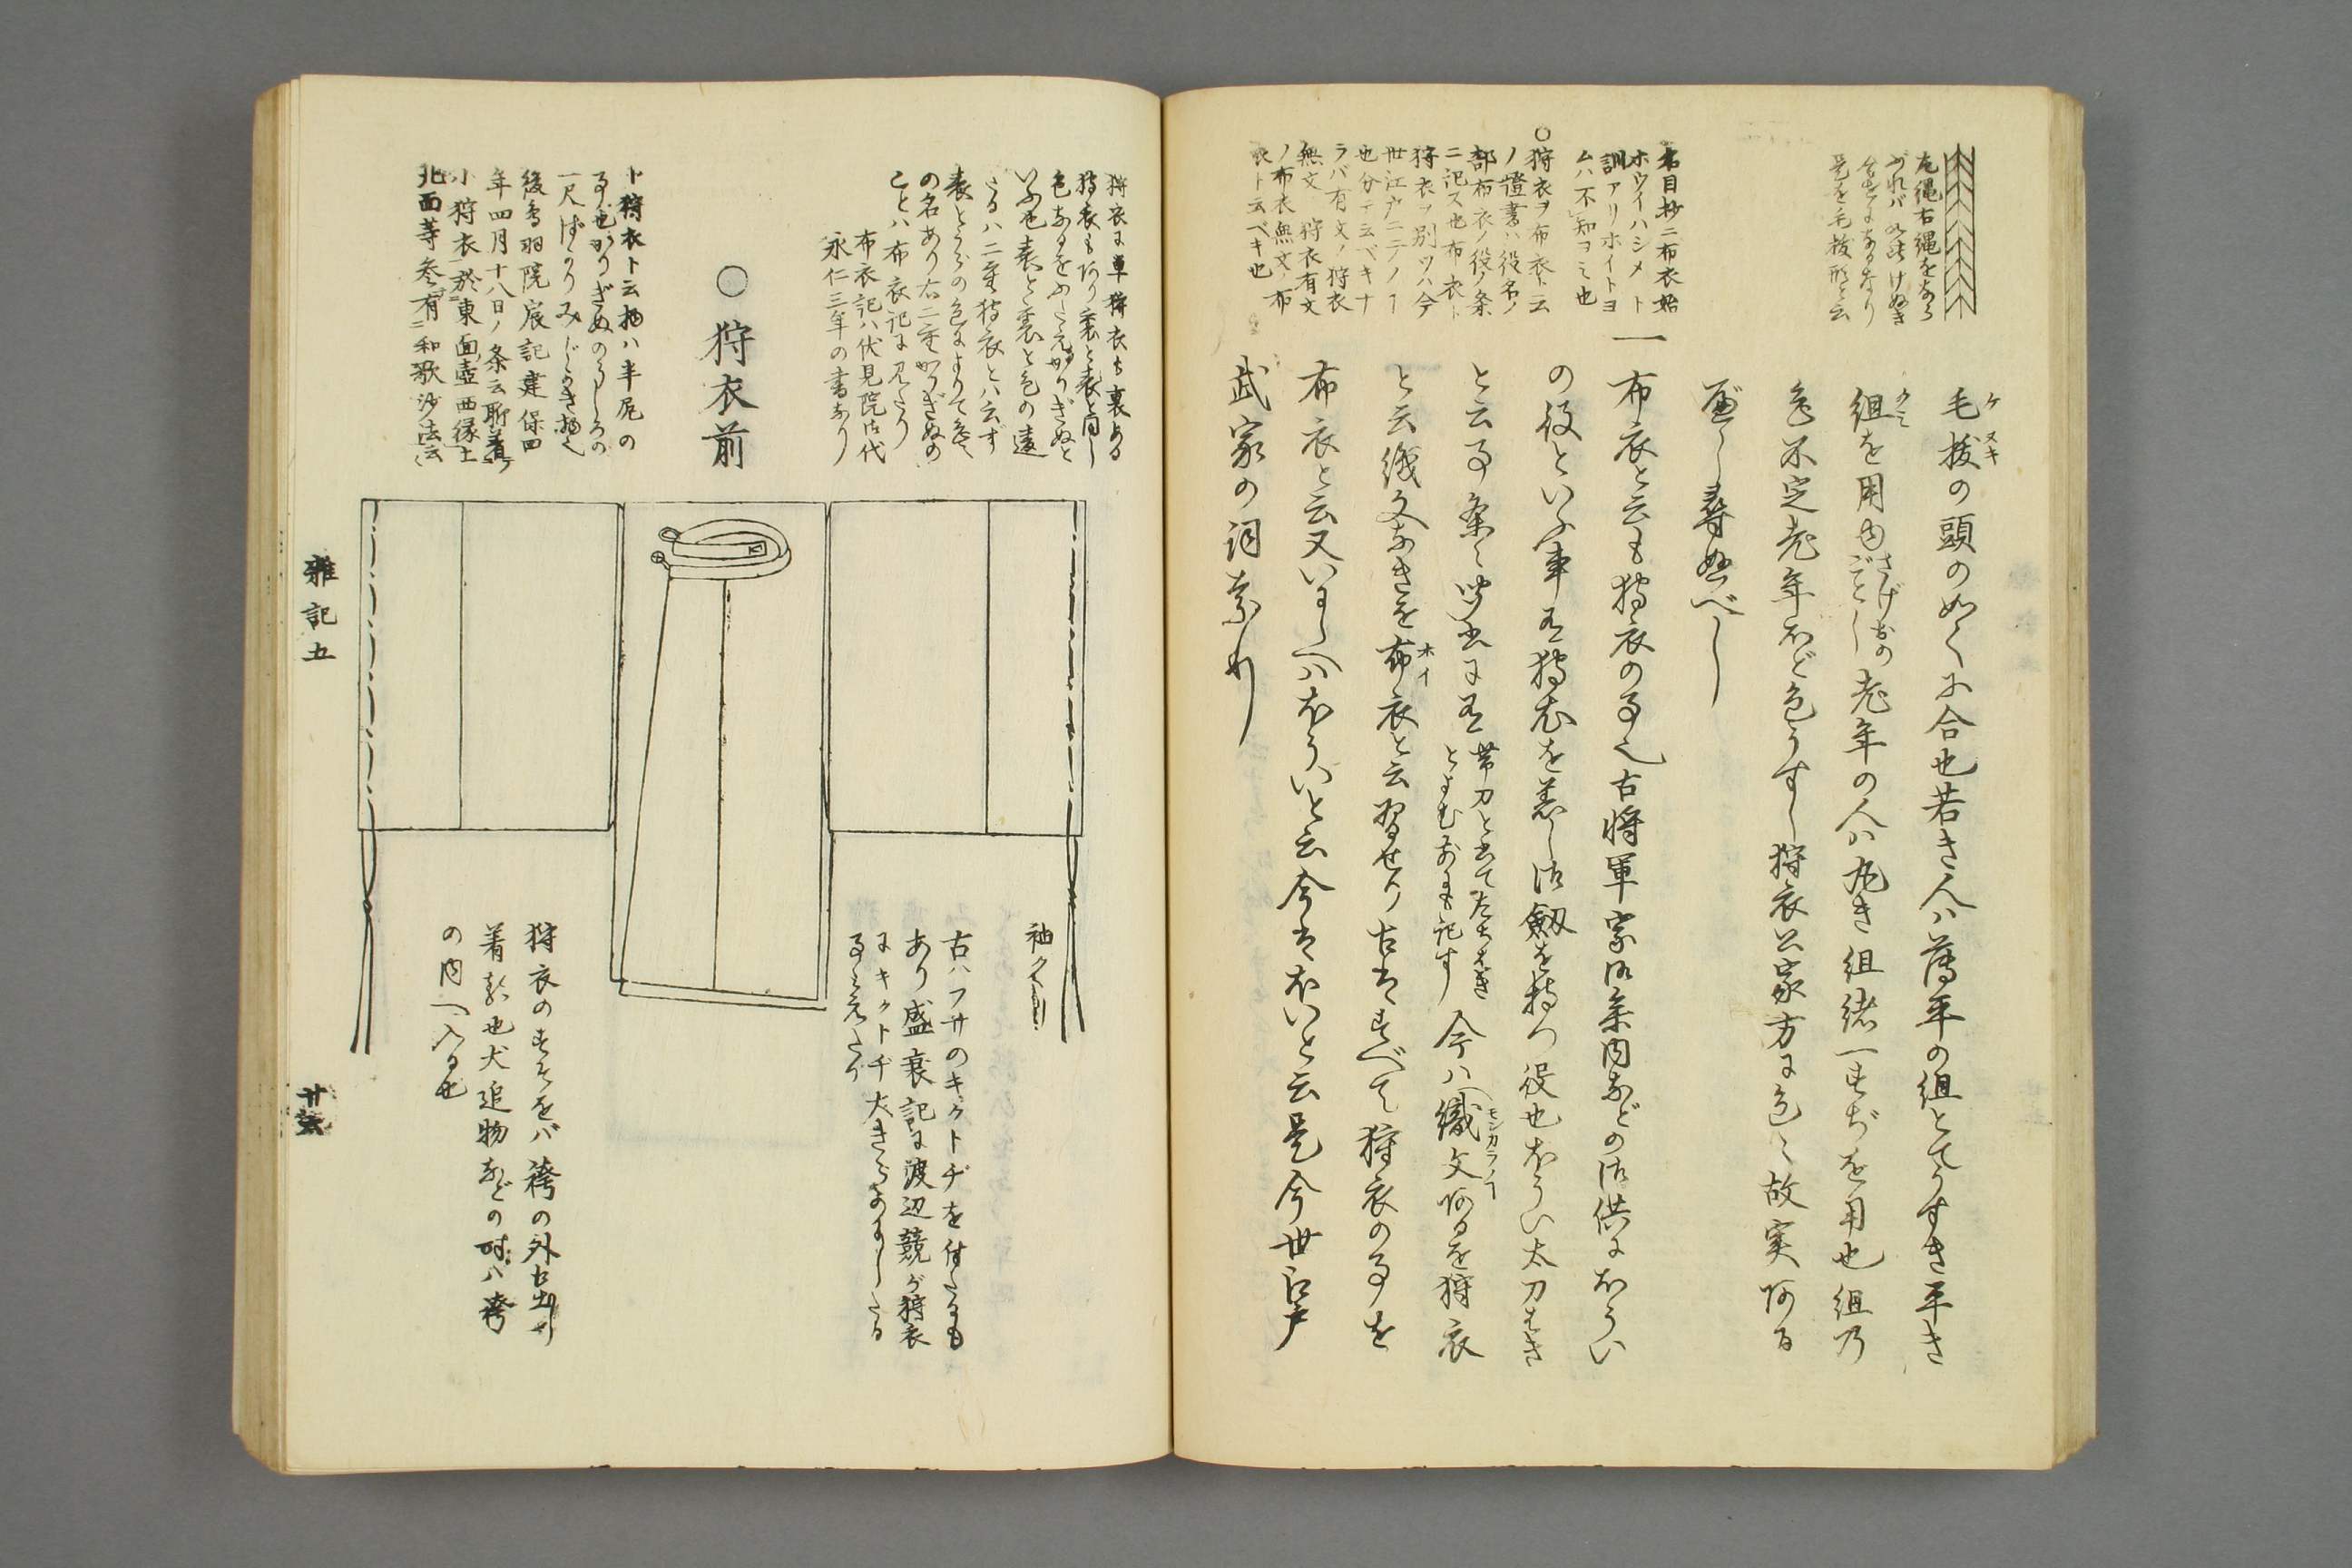 左縄右縄をなら
べれバ如此けぬき
合せになるなり
是を毛抜形と云
毛抜の頭のやくに合也若き人ハ薄平の組とてうすき平き
組を用由さげおのごとし老年の人ハ丸き組緒一すぢを用也組乃
色不定老年ほど色うすし狩衣公家方に色々故実阿る
べし尋ぬべし
名目抄ニ布衣始
ホウイハシメト
訓アリホイトヨ
ムハ不知ヨミ也
一布衣と云も狩衣の事也古将軍家御参内などの御供にほうい
の役といふ事有狩衣を着し御劔を持つ役也ほうい太刀はき
と云事条々聞書に有帯刀と書てたちはきとよむ前にも記す今ハ織文阿るを狩衣
と云織文なきを布衣と云習せり古はすべて狩衣の事を
布衣と云又いにしへハほういと云今はほいと云是今世江戸
武家の詞なり
○狩衣ヲ布衣ト云
ノ證書ハ役名ノ
部布衣ノ役ノ条
ニ記ス也布衣ト
狩衣ヲ別ツハ今
世江戸ニテノヿ
也分テ云ベキナ
ラバ有文ノ狩衣
無文ノ狩衣有文
ノ布衣無文ノ布
衣ト云ベキ也
狩衣に単狩衣も裏ある
狩衣もあり裏と表と同し
色なるをふたえかりぎぬと
いふ也表と裏と色の違
たるハ二重狩衣とハ云ず
表とうらの色によりて色々
の名あり右二重かりぎぬの
ことハ布衣記に見えたり
布衣記ハ伏見院御代
永仁三年の書なり
○狩衣前
小狩衣ト云物ハ半尻の
事也かりぎぬのうしろの
一尺ばかりみじかき物也
後鳥羽院宸記建保四
年四月十八日ノ条云聊着
小狩衣於東面壺西縁上
北面等参有和歌沙法云々
袖クヽリ
古ハフサのキクトヂを付たるも
あり盛衰記に渡辺競が狩衣
にキクトヂ大きらかにしたる
事見えたり
狩衣のすそをバ袴の外に出し
着る也犬追物などの時ハ袴
の内へ入る也
雑記五
廿六